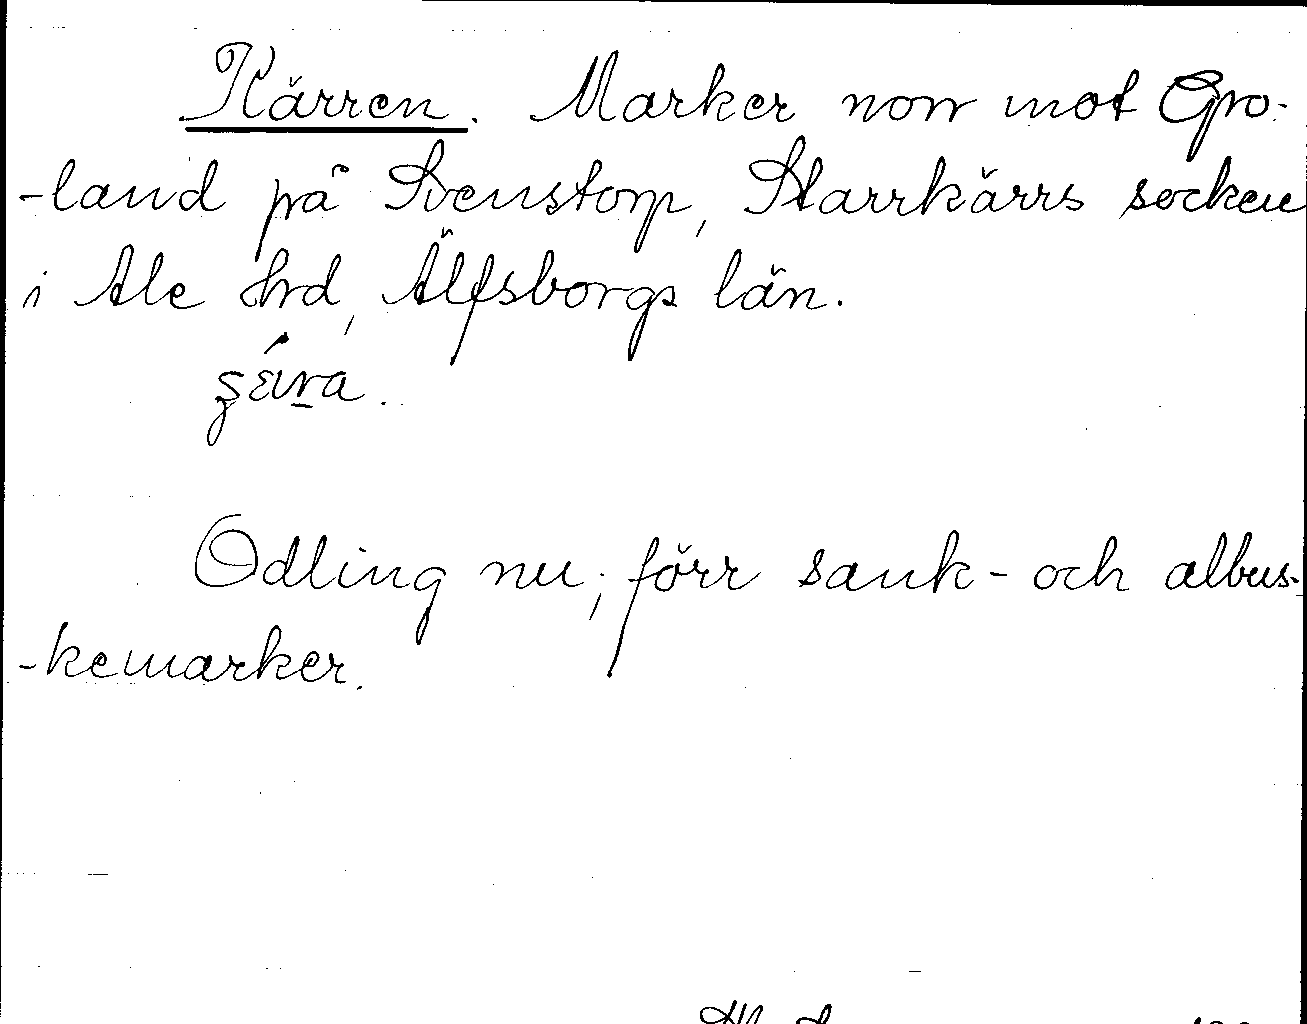 Kärren. Marker norr mot Gro-
-land på Svenstorp, Starrkärrs socken
i Ale hrd, Älfsborgs län.
Odling nu; förr sank- och albus-
-kemarker.